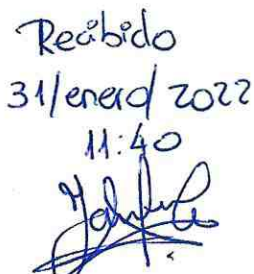 Recibido
31/enero/2022
11:40